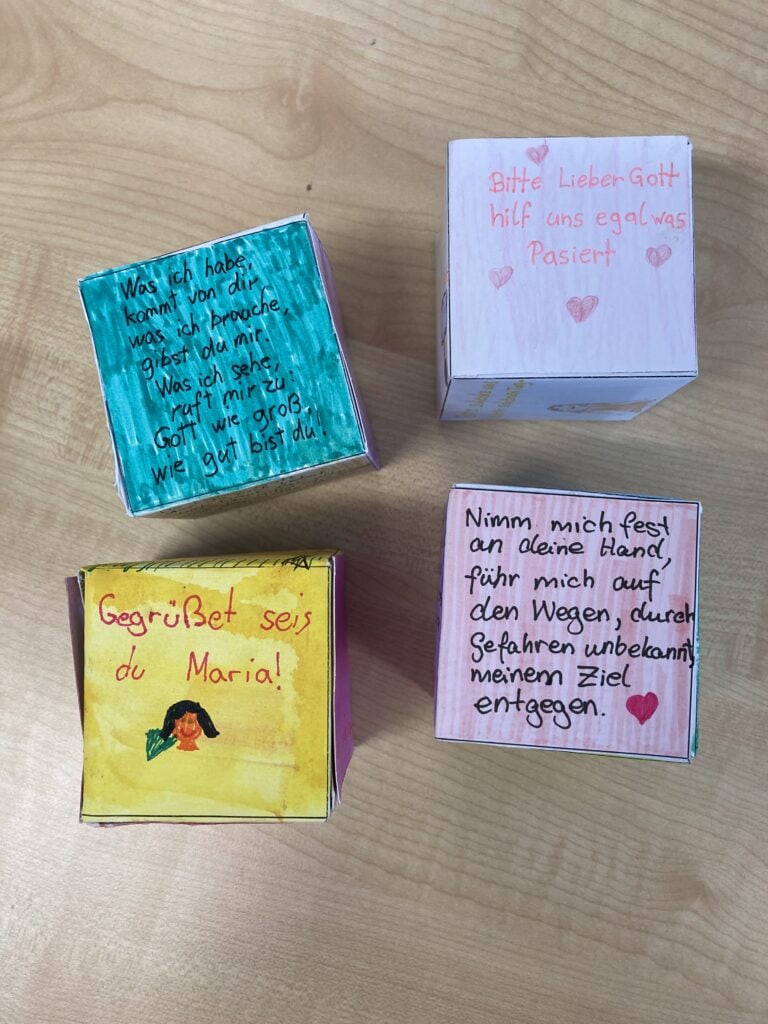 Was ich habe,
kommt von dir
was ich brauche,
gibst du mir.
Was ich sehe,
ruft mir zu:
Gott wie groß,
wie gut bist du!
Bitte Lieber Gott
hilf uns egal was
Pasiert
Gegrüßet seis
du Maria!
Nimm mich fest
an deine Hand,
führ mich auf
den Wegen, durch
Gefahren unbekannt,
meinem Ziel
entgegen.